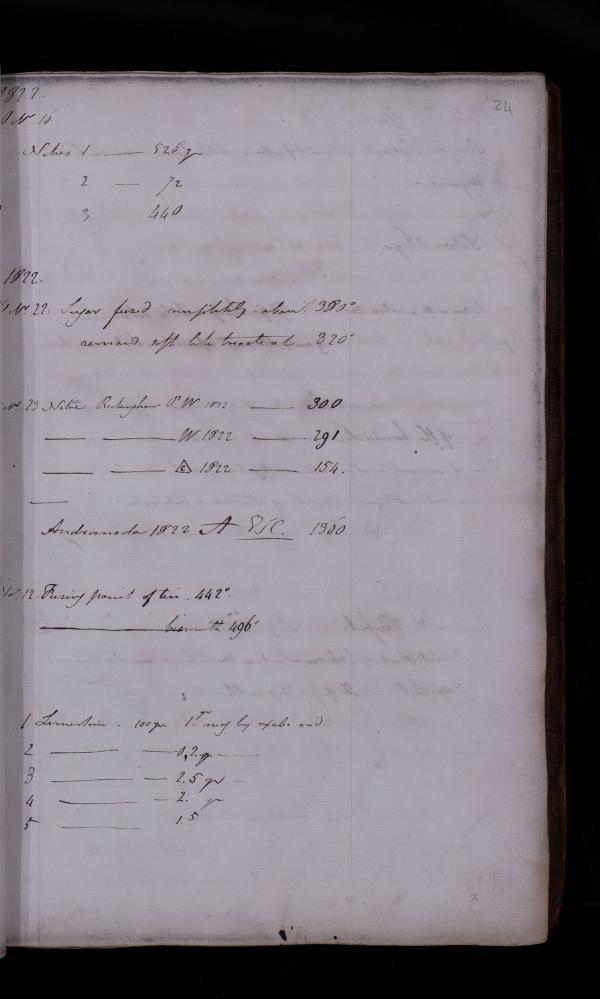 24
1822.
No 16
Nitre 1 — 526 gr
2 — 72
3 440
1822.
Nov 22. Sugar fused completely about 380°
remained like treacle at 320°
Nov 23 Nitre Rockingham P W. 1822 — 300
— — W 1822 — 291
— — C 1822 — 154.
Andromeda 1822 A EIC. 1360
12. Fusing point of tin. 442°.
— bismuth 496°
1 Limestone. 100 gr. 1 gr mag by oxalic acid
2 — — 0,2 gr —
3 — — 2.5 gr —
4 — — 2. gr
5 — 1.5